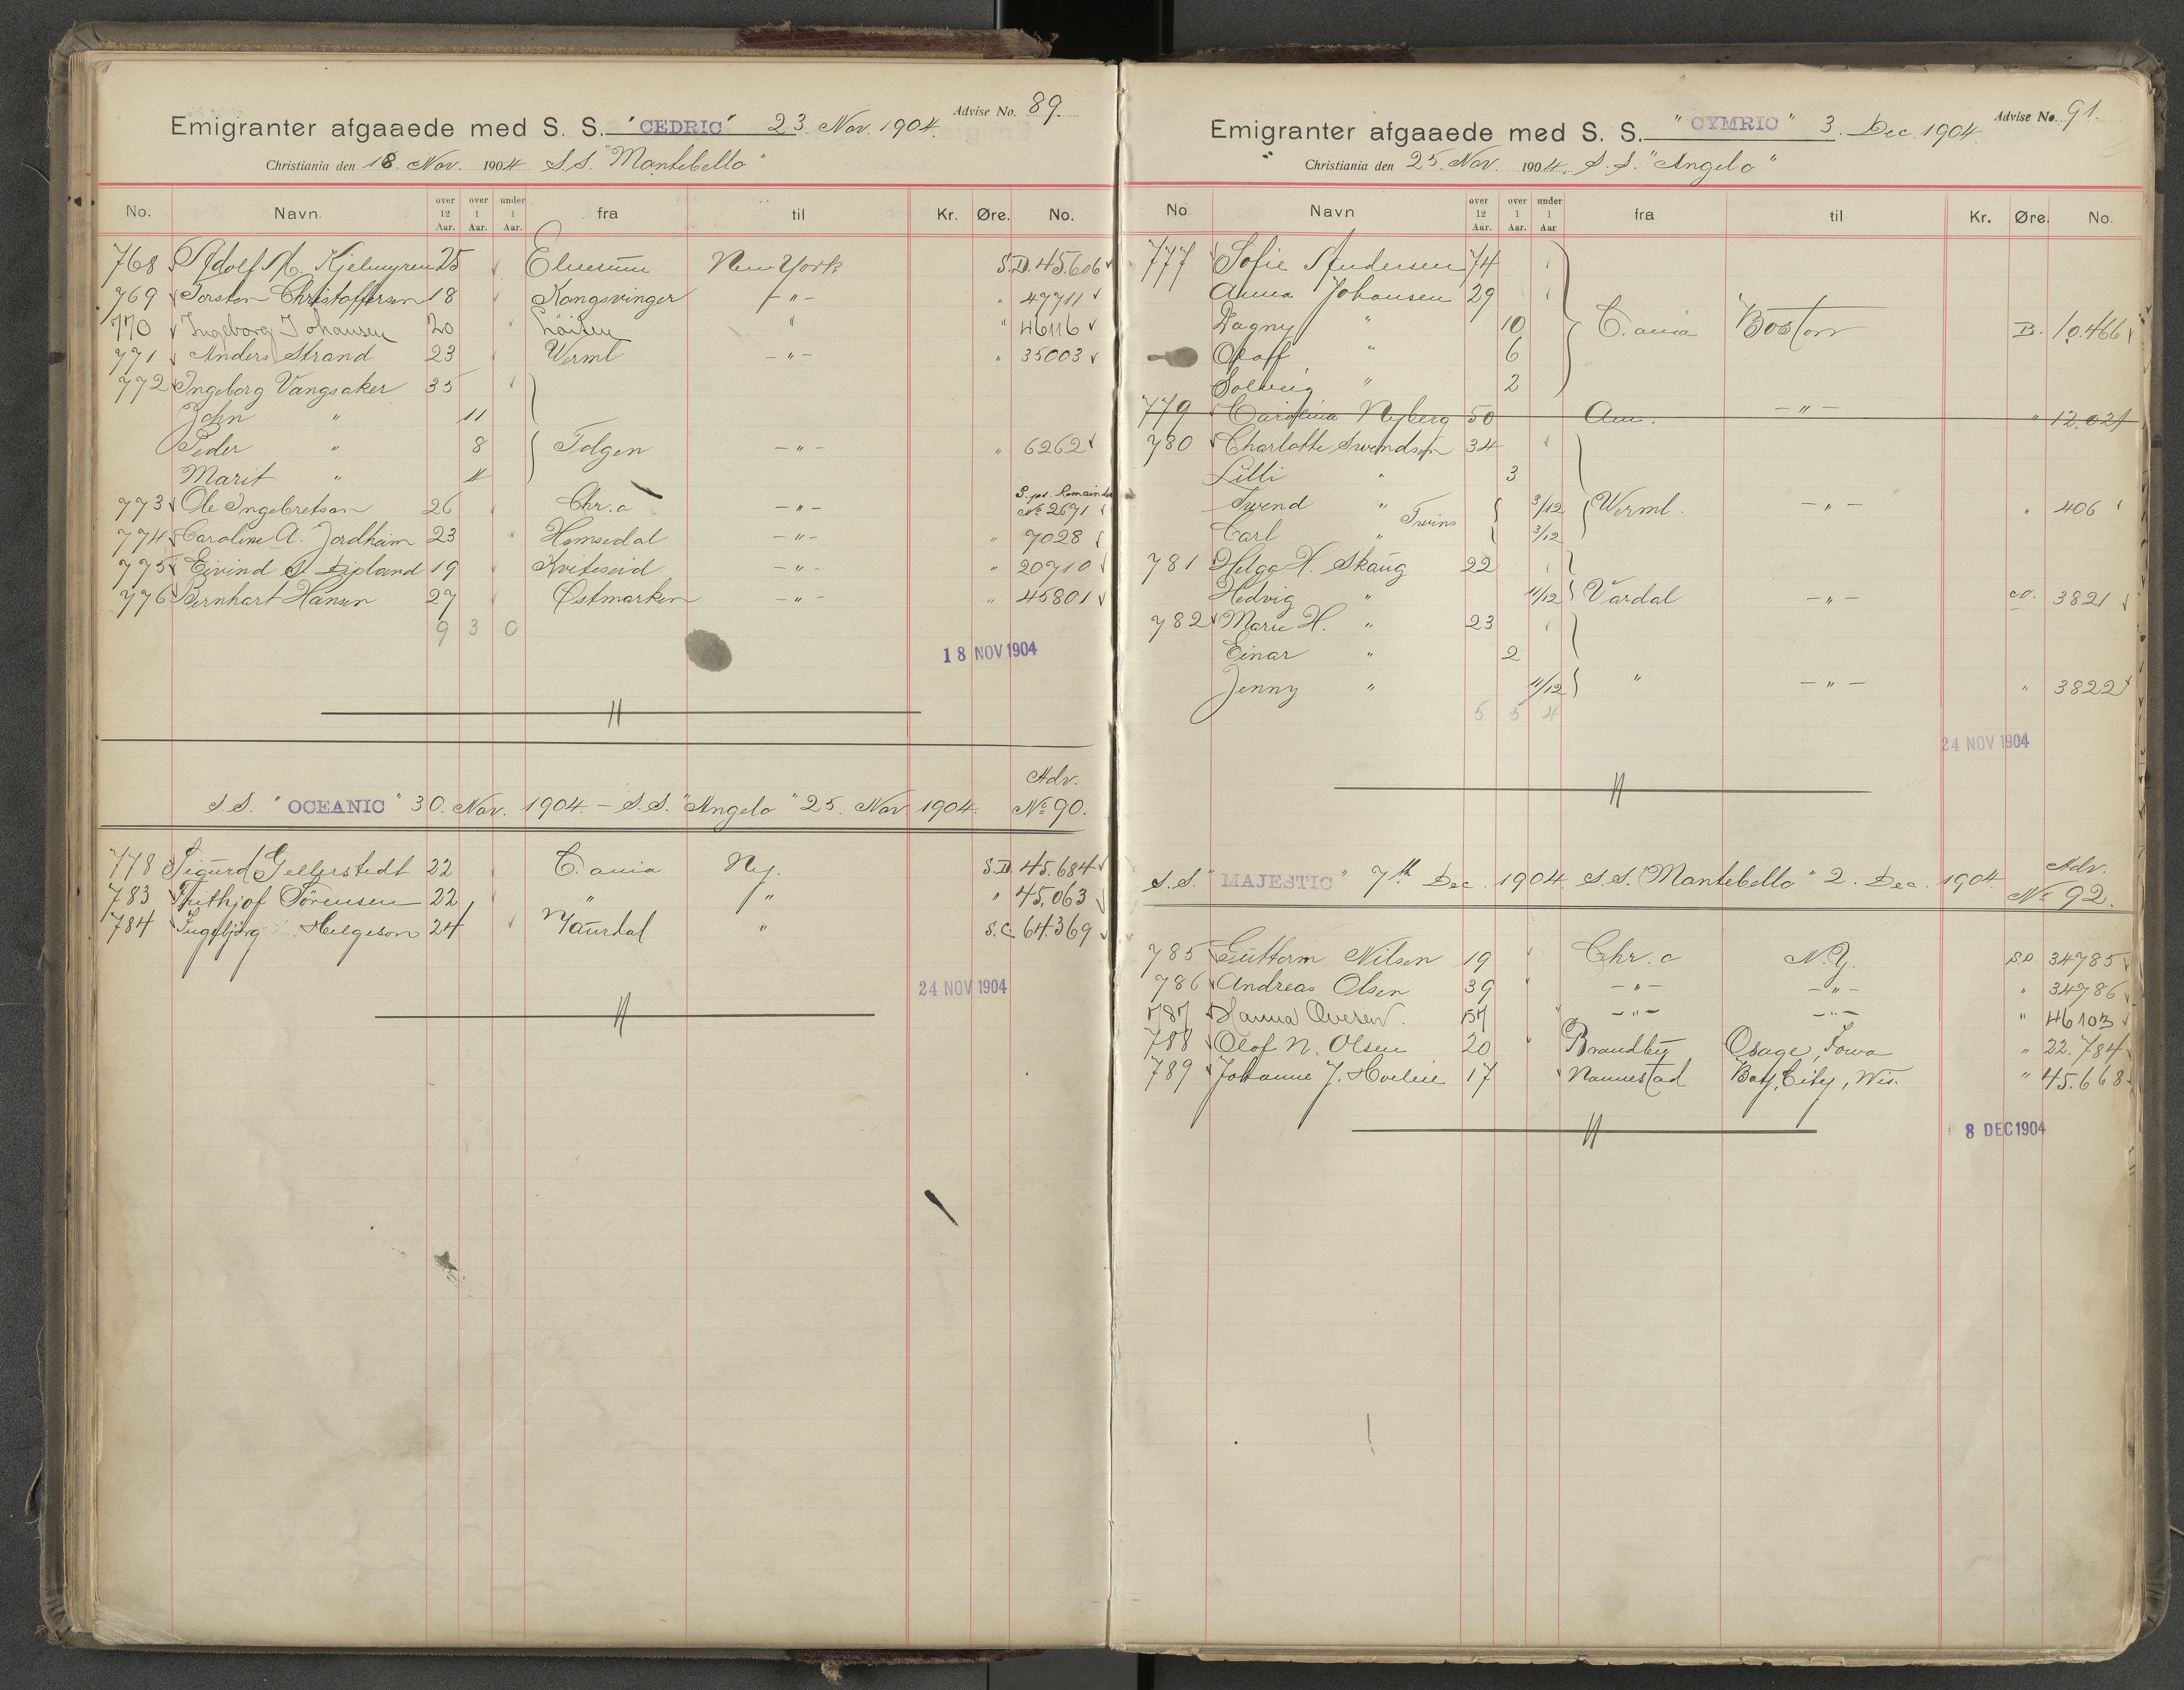 Advise No. 89.
Emigranter afgaaede med S. S. "CEDRIC" 23. Nov. 1904.
Christiania den 18. Nov. 1904 S.S. "Montebello"
No. Navn over 12 Aar. over 1 Aar. under 1 Aar. fra til Kr. Øre. No.
768 Adolf M. Kjelmyren 25 Elverum New York S.D. 45.606
769 Torsten Christoffersen 18 Kongsvinger - " - " 47711
770 Ingeborg Johansen 20 Löiten " " 46116
771 Anders Strand 23 Werml - " - " 35003
772 Ingeborg Vangsaker 35
John " 11
Peder " 8 Tolgen - " - " 6262
Marit " 4
773 Ole Ingebretsen 26 Chr.a - " - P. pd. Remainder No 2671
774 Caroline A. Jordheim 23 Hemsedal - " - " 7028
775 Eivind S. Dipland 19 Kviteseid - " - " 20710
776 Bernhart Hansen 27 Østmarken - " - " 45801
9 3 0
18 NOV 1904
Adv.
S.S. "OCEANIC" 30. Nov. 1904. - S.S. "Angelo" 25. Nov. 1904. No 90.
778 Sigurd Gellerstedt 22 C.ania Ny. S.D. 45.684
783 Frithjof Sörensen 22 " " " 45,063
784 Ingebjörg Helgeson 24 Naurdal " S.C. 64.369
24 NOV 1904
Advise No. 91.
Emigranter afgaaede med S. S. "CYMRIC" 3. Dec. 1904
Christiania den 25. Nov. 1904. S.S. "Angelo"
No Navn over 12 Aar. over 1 Aar. under 1 Aar fra til Kr. Øre. No.
777 Sofie Andersen 74
Anna Johansen 29
Dagny " 10 C.ania Boston B. 10.466
Olaff " 6
Solveig " 2
779 Carolina Nyberg 50 Am. - " - " 12.021
780 Charlotte Swendsen 34
Lilli " 3
Swend " Twins 3/12 Werml. - " - " 406
Carl " 3/12
781 Helga H. Skaug 22
Hedvig " 11/12 Vardal - " - co. 3821
782 Marie H. " 23
Einar " 2
Jenny " 11/12 " - " - " 3822
5 5 4
24 NOV 1904
Adv.
S.S. "MAJESTIC" 7th Dec. 1904 S.S. "Montebello" 2. Dec. 1904 No 92.
785 Guttorm Nilsen 19 Chr.a N.Y. S.D. 34785
786 Andreas Olsen 39 - " - - " - " 34786
787 Hanna Oversen. 57 - " - - " - " 46103
788 Olof N. Olsen 20 Brandbu Osage, Iowa " 22.784
789 Johanne J. Hvelen 17 Nannestad Bay City, Wis. " 45.668
8 DEC 1904